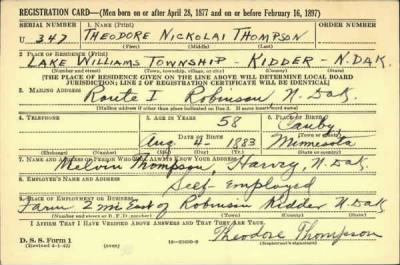 REGISTRATION CARD—(Men born on or after April 28, 1877 and on or before February 16, 1897)
SERIAL NUMBER
1. NAME (Print)
U 347
THEODORE NICKOLAI THOMPSON
(First) (Middle) (Last)
2. PLACE OF RESIDENCE (Print)
LAKE WILLIAMS TOWNSHIP - KIDDER - N. DAK.
(Number and street) (Town, township, village, or city) (County) (State)
[THE PLACE OF RESIDENCE GIVEN ON THE LINE ABOVE WILL DETERMINE LOCAL BOARD
JURISDICTION; LINE 2 OF REGISTRATION CERTIFICATE WILL BE IDENTICAL]
3. MAILING ADDRESS
Route I Robinson N. Dak.
[Mailing address if other than place indicated on line 2. If same insert word same]
4. TELEPHONE
5. AGE IN YEARS
58
6. PLACE OF BIRTH
Canby
DATE OF BIRTH
(Town or county)
Aug 4 - 1883
Minnesota
(Exchange) (Number) (Mo.) (Day) (Yr.) (State or country)
7. NAME AND ADDRESS OF PERSON WHO WILL ALWAYS KNOW YOUR ADDRESS
Melvin Thompson, N. Dak.
8. EMPLOYER'S NAME AND ADDRESS
Self-Employed
9. PLACE OF EMPLOYMENT OR BUSINESS
Farm 2 mi East of Robinson Kidder N. Dak
(Number and street or R. F. D. number) (Town) (County) (State)
I AFFIRM THAT I HAVE VERIFIED ABOVE ANSWERS AND THAT THEY ARE TRUE.
D. S. S. Form 1
(Revised 4-1-42) (over)
Theodore Thompson
(Registrant's signature)